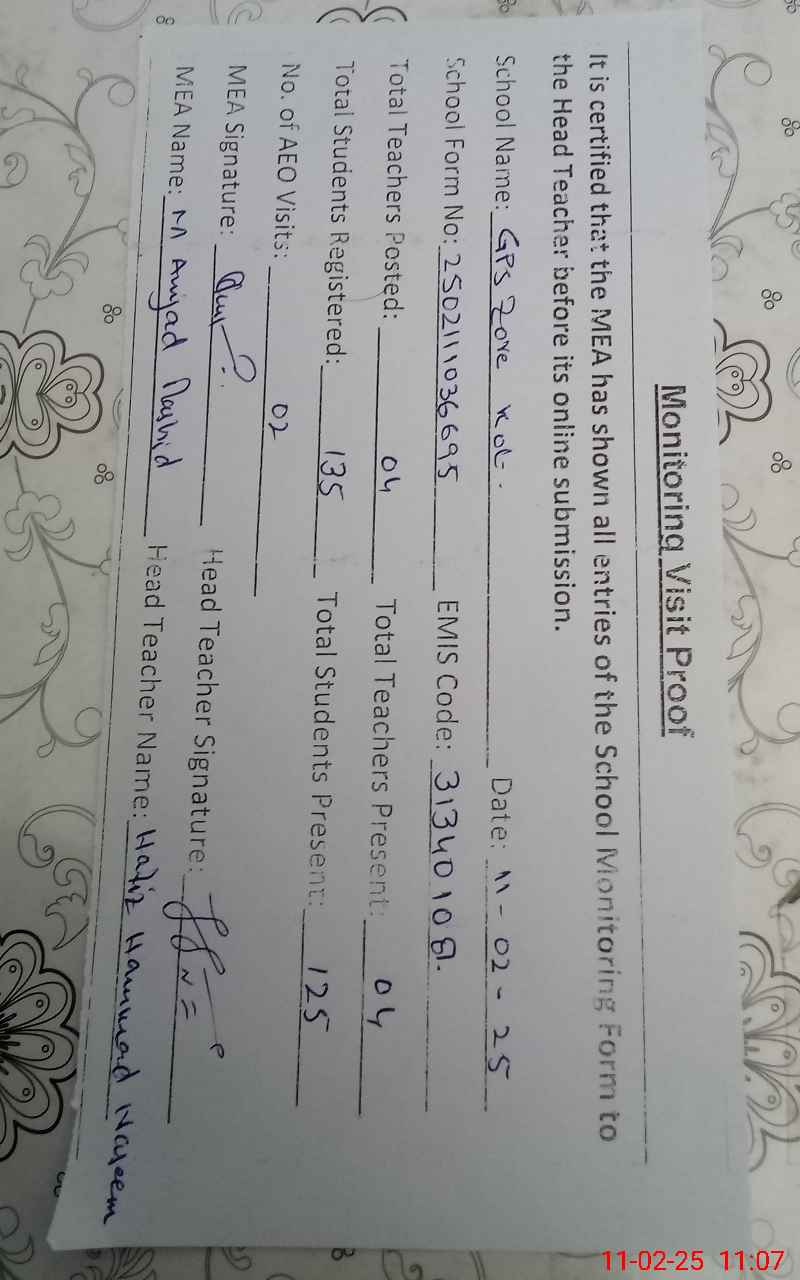 Monitoring Visit Proof
It is certified that the MEA has shown all entries of the School Monitoring Form to
the Head Teacher before its online submission.
School Name: GPS Zore Kot. Date: 11-02-25
School Form No: 250211036695 EMIS Code: 31340108.
Total Teachers Posted: 04 Total Teachers Present: 04
Total Students Registered: 135 Total Students Present: 125
No. of AEO Visits: 02
MEA Signature: Head Teacher Signature:
MEA Name: M Amjad Rashid Head Teacher Name: Hafiz Hammad Nayeem
11-02-25 11:07